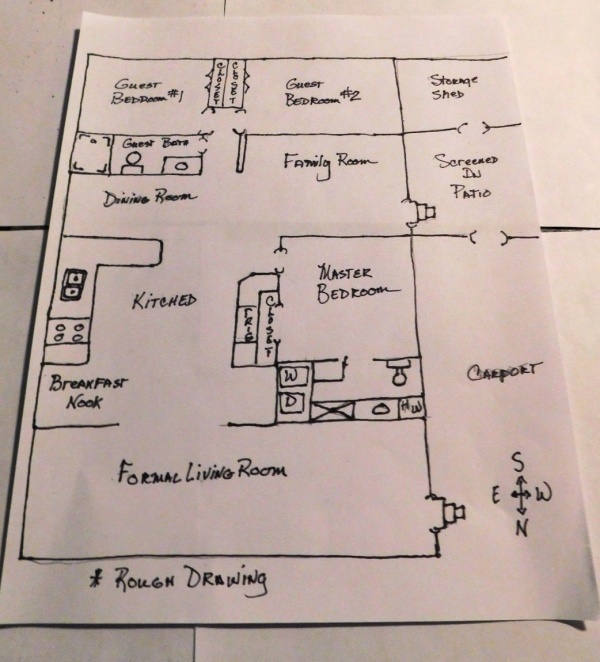 GUEST
BEDROOM #1
CLOSET
CLOSET
GUEST
BEDROOM #2
STORAGE
SHED
GUEST BATH
FAMILY ROOM
SCREENED
IN
PATIO
DINING ROOM
KITCHED
MASTER
BEDROOM
FRIG
CLOSET
BREAKFAST
NOOK
W
D
H/W
CARPORT
FORMAL LIVING ROOM
S
E W
N
* ROUGH DRAWING